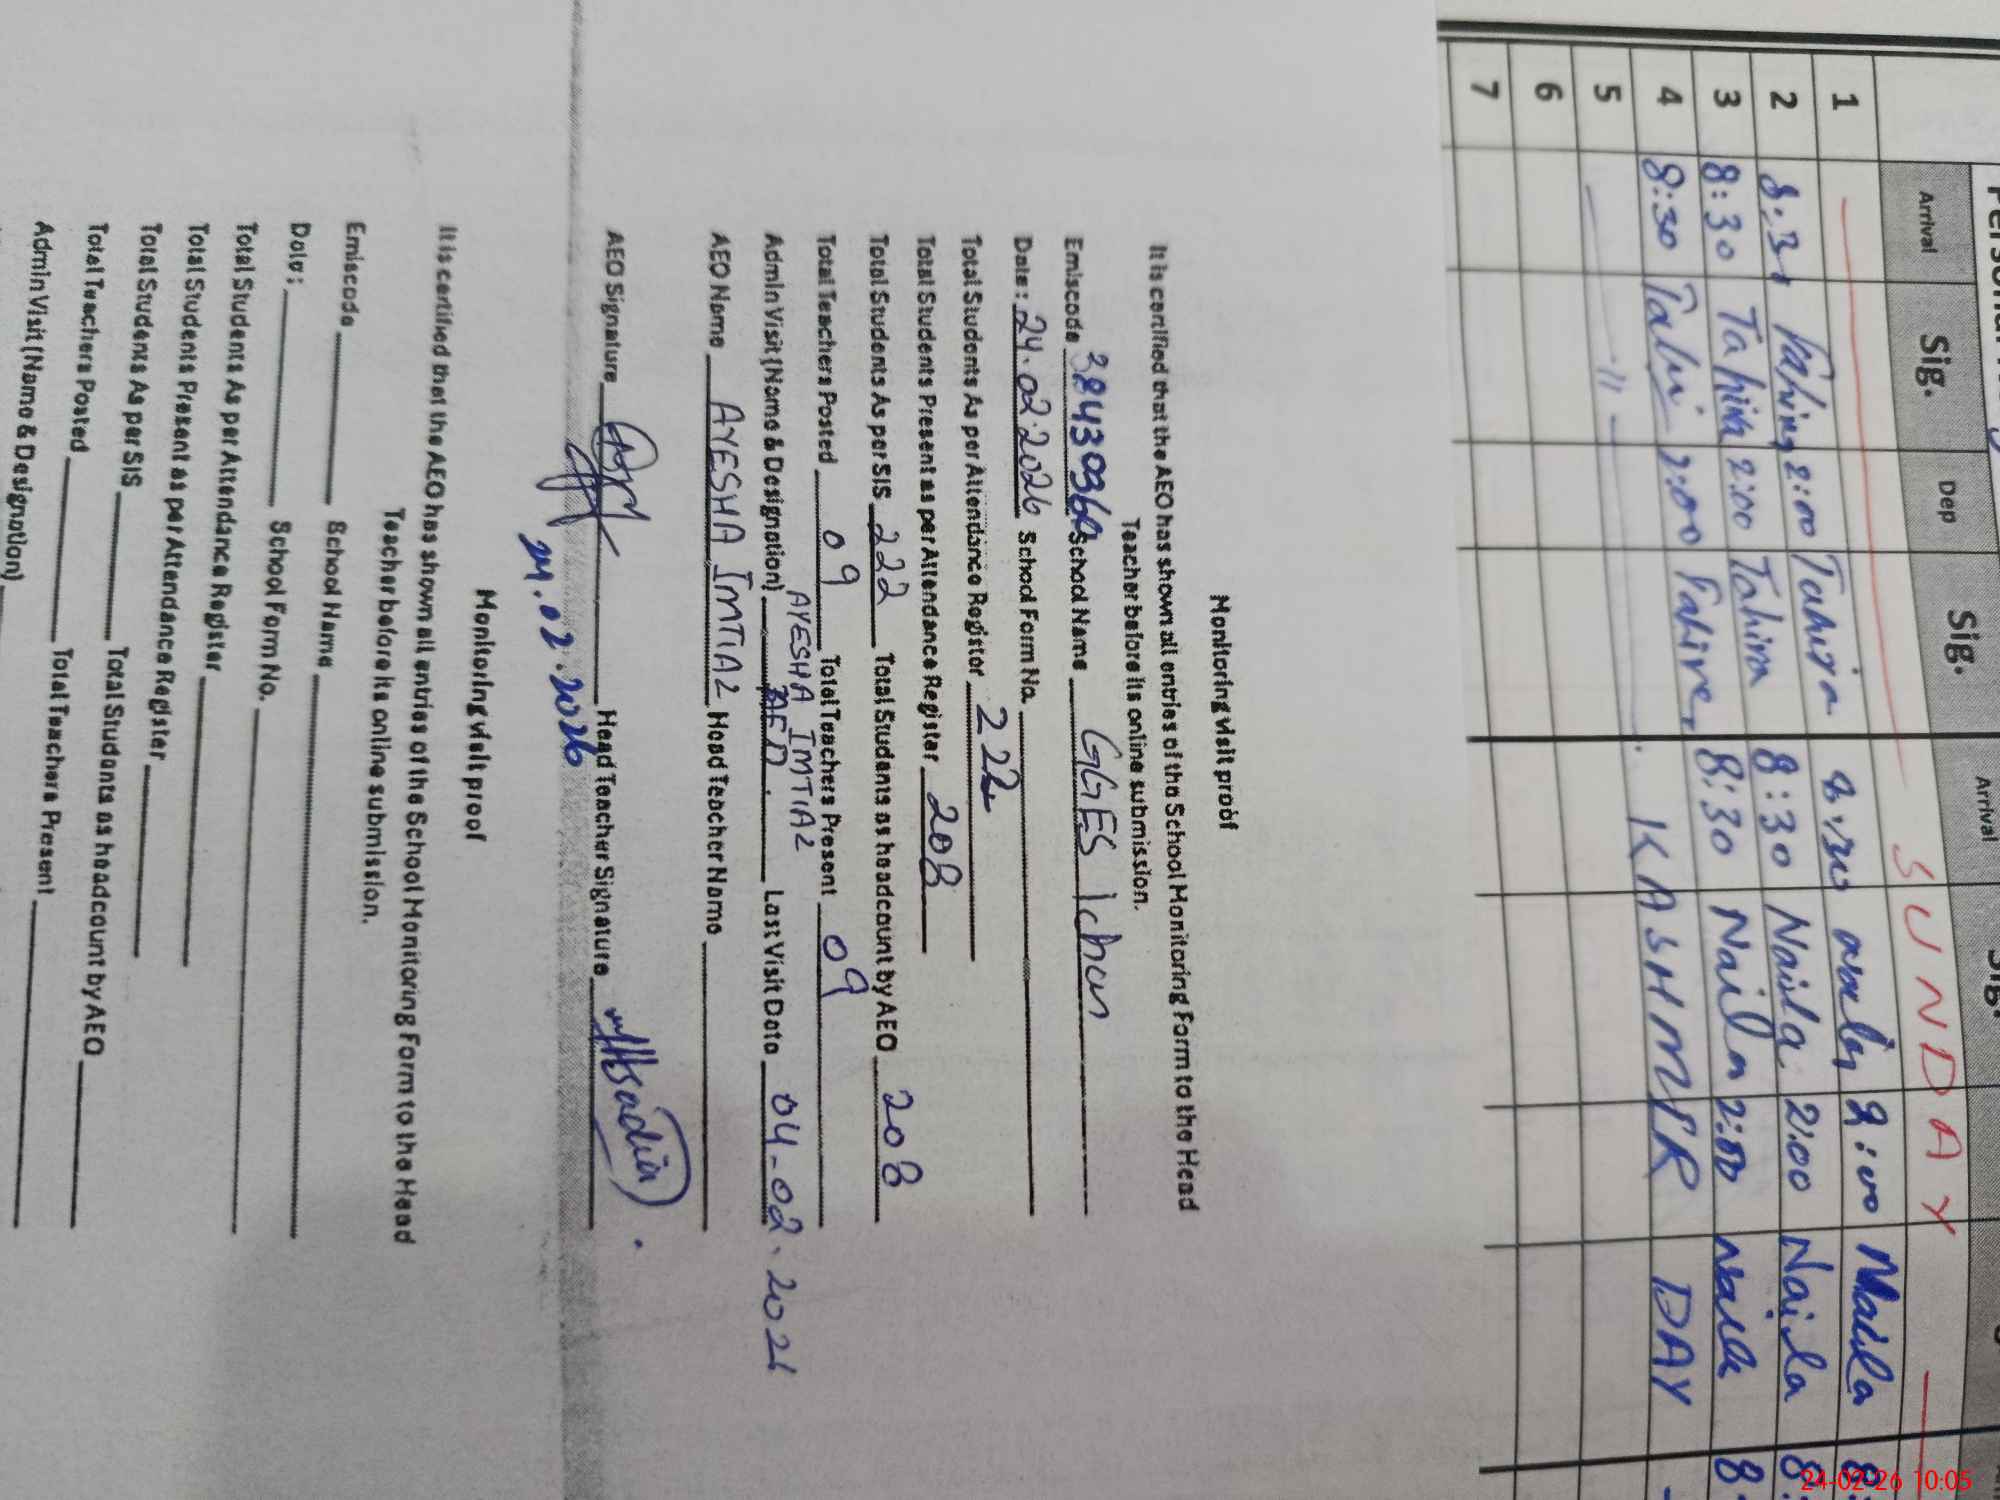 Arrival Sig. Dep Sig. Arrival
SUNDAY
1 Tahira 8:30 2:00 Naila
2 8:30 2:00 Tahira 8:30 Naila 2:00 Naila
3 8:30 Tahira 2:00 Tahira 8:30 Naila 2:00 Naila
4 8:30 2:00
5 — 11 — KASHMIR DAY
6
7
Monitoring visit proof
It is certified that the AEO has shown all entries of the School Monitoring Form to the Head
Teacher before its online submission.
Emiscode School Name GGES
Date: 24.02.2026 School Form No.
Total Students As per Attendance Register 222
Total Students Present as per Attendance Register 208
Total Students As per SIS 222 Total Students as headcount by AEO 208
Total Teachers Posted 09 Total Teachers Present 09
AYESHA IMTIAZ
Admin Visit (Name & Designation) AEO. Last Visit Date 04-02.2026
AEO Name AYESHA IMTIAZ Head Teacher Name
AEO Signature Head Teacher Signature
24.02.2026
Monitoring visit proof
It is certified that the AEO has shown all entries of the School Monitoring Form to the Head
Teacher before its online submission.
Emiscode School Name
Date: School Form No.
Total Students As per Attendance Register
Total Students Present as per Attendance Register
Total Students As per SIS Total Students as headcount by AEO
Total Teachers Posted Total Teachers Present
Admin Visit (Name & Designation)
24-02-26 10:05